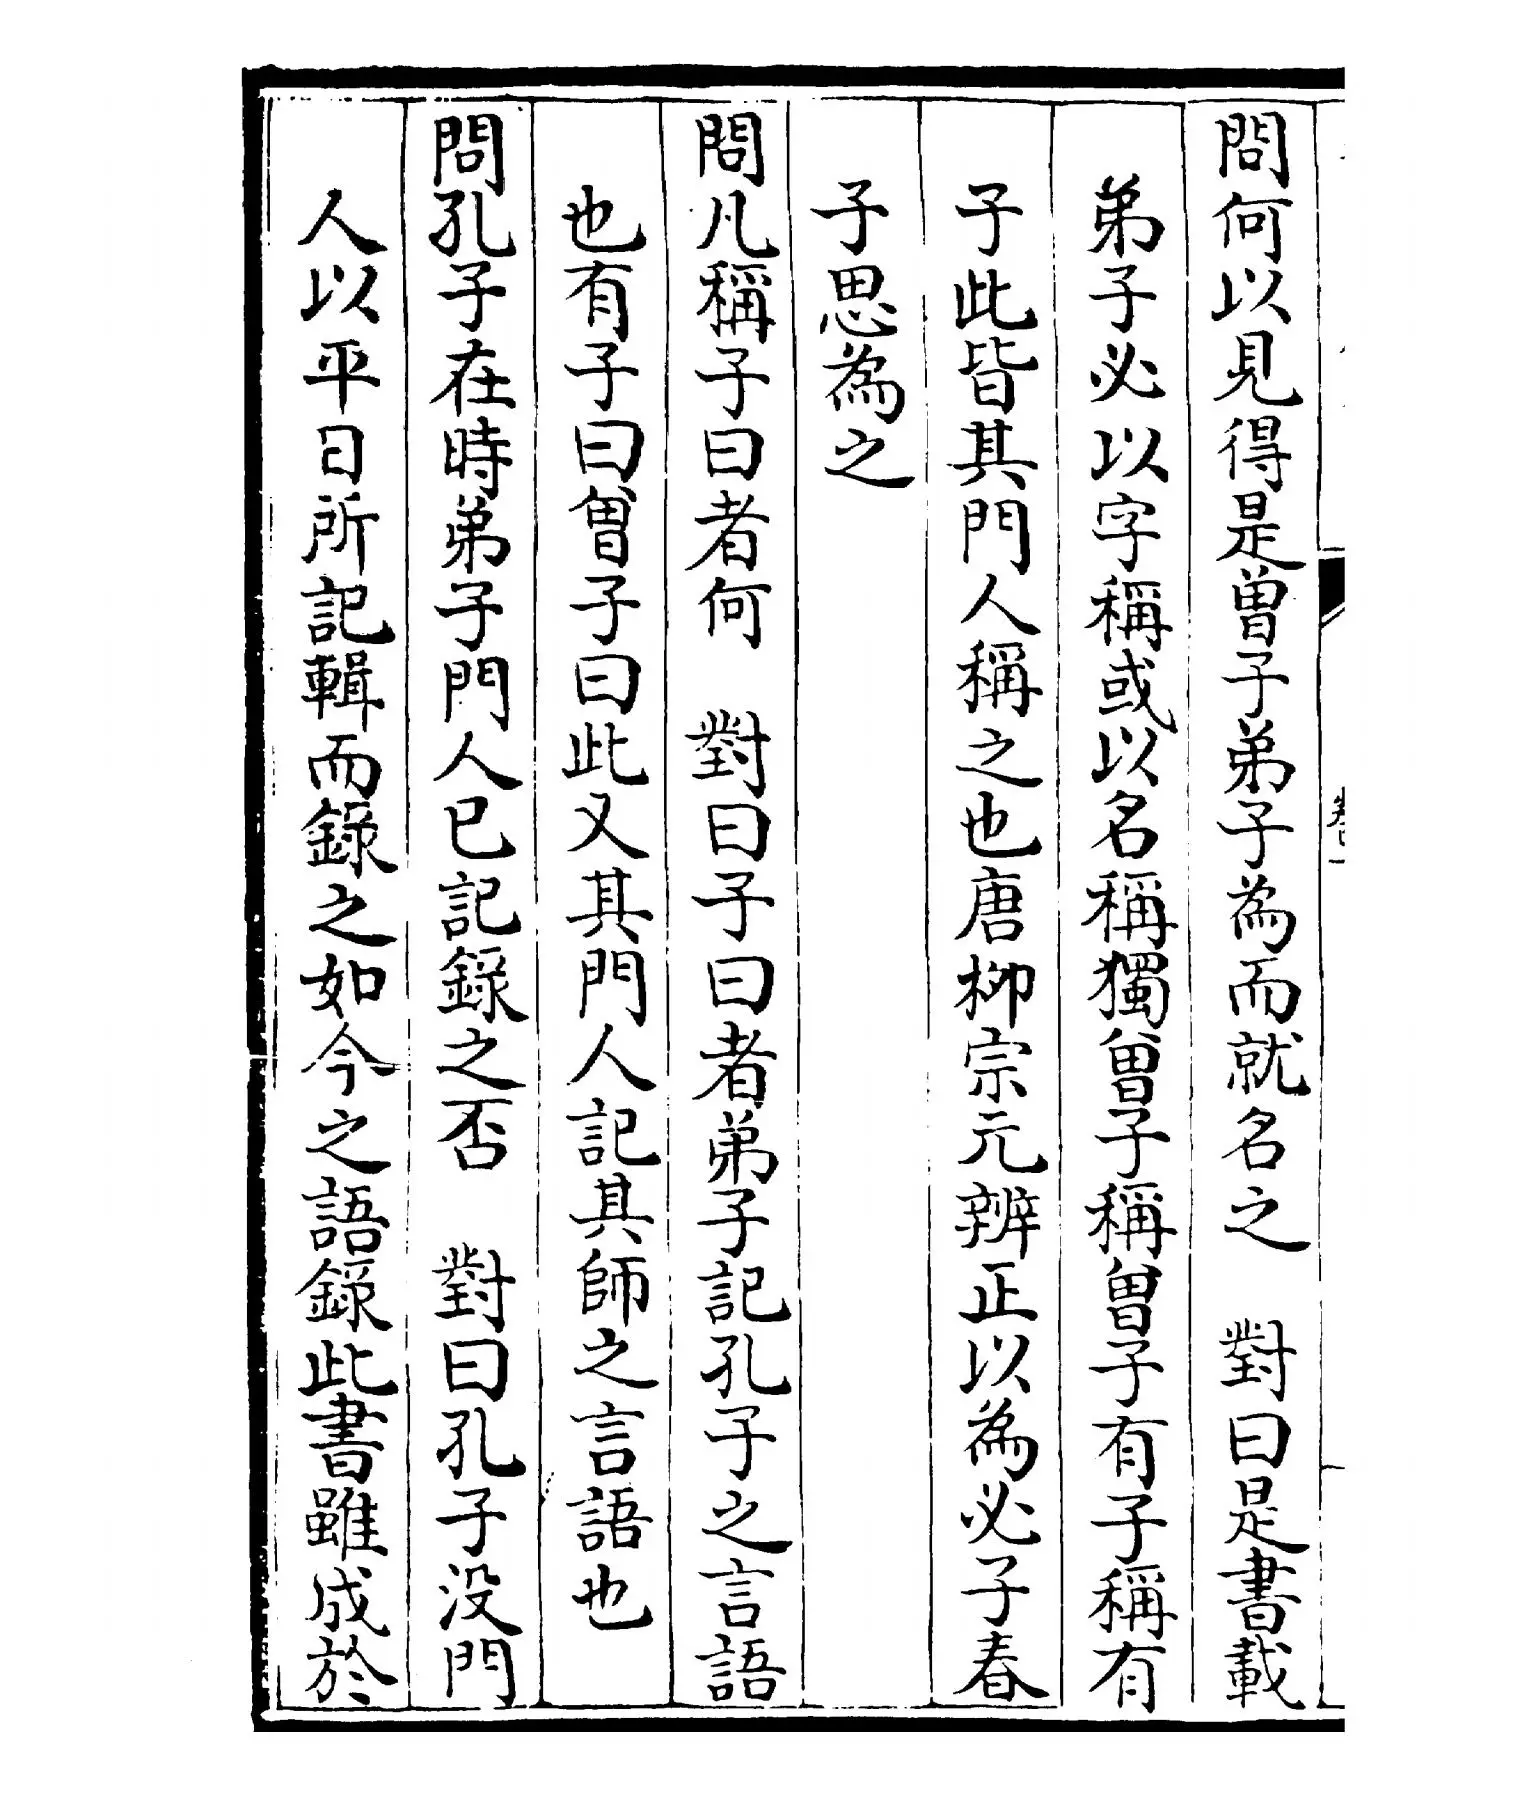 問何以見得是曽子弟子為而就名之　對曰是書載
弟子必以字稱或以名稱獨曽子稱曽子有子稱有
子此皆其門人稱之也唐栁宗元辨正以為必子春
子思為之
問凡稱子曰者何　對曰子曰者弟子記孔子之言語
也有子曰曽子曰此又其門人記其師之言語也
問孔子在時弟子門人已記錄之否　對曰孔子没門
人以平日所記輯而錄之如今之語錄此書雖成於